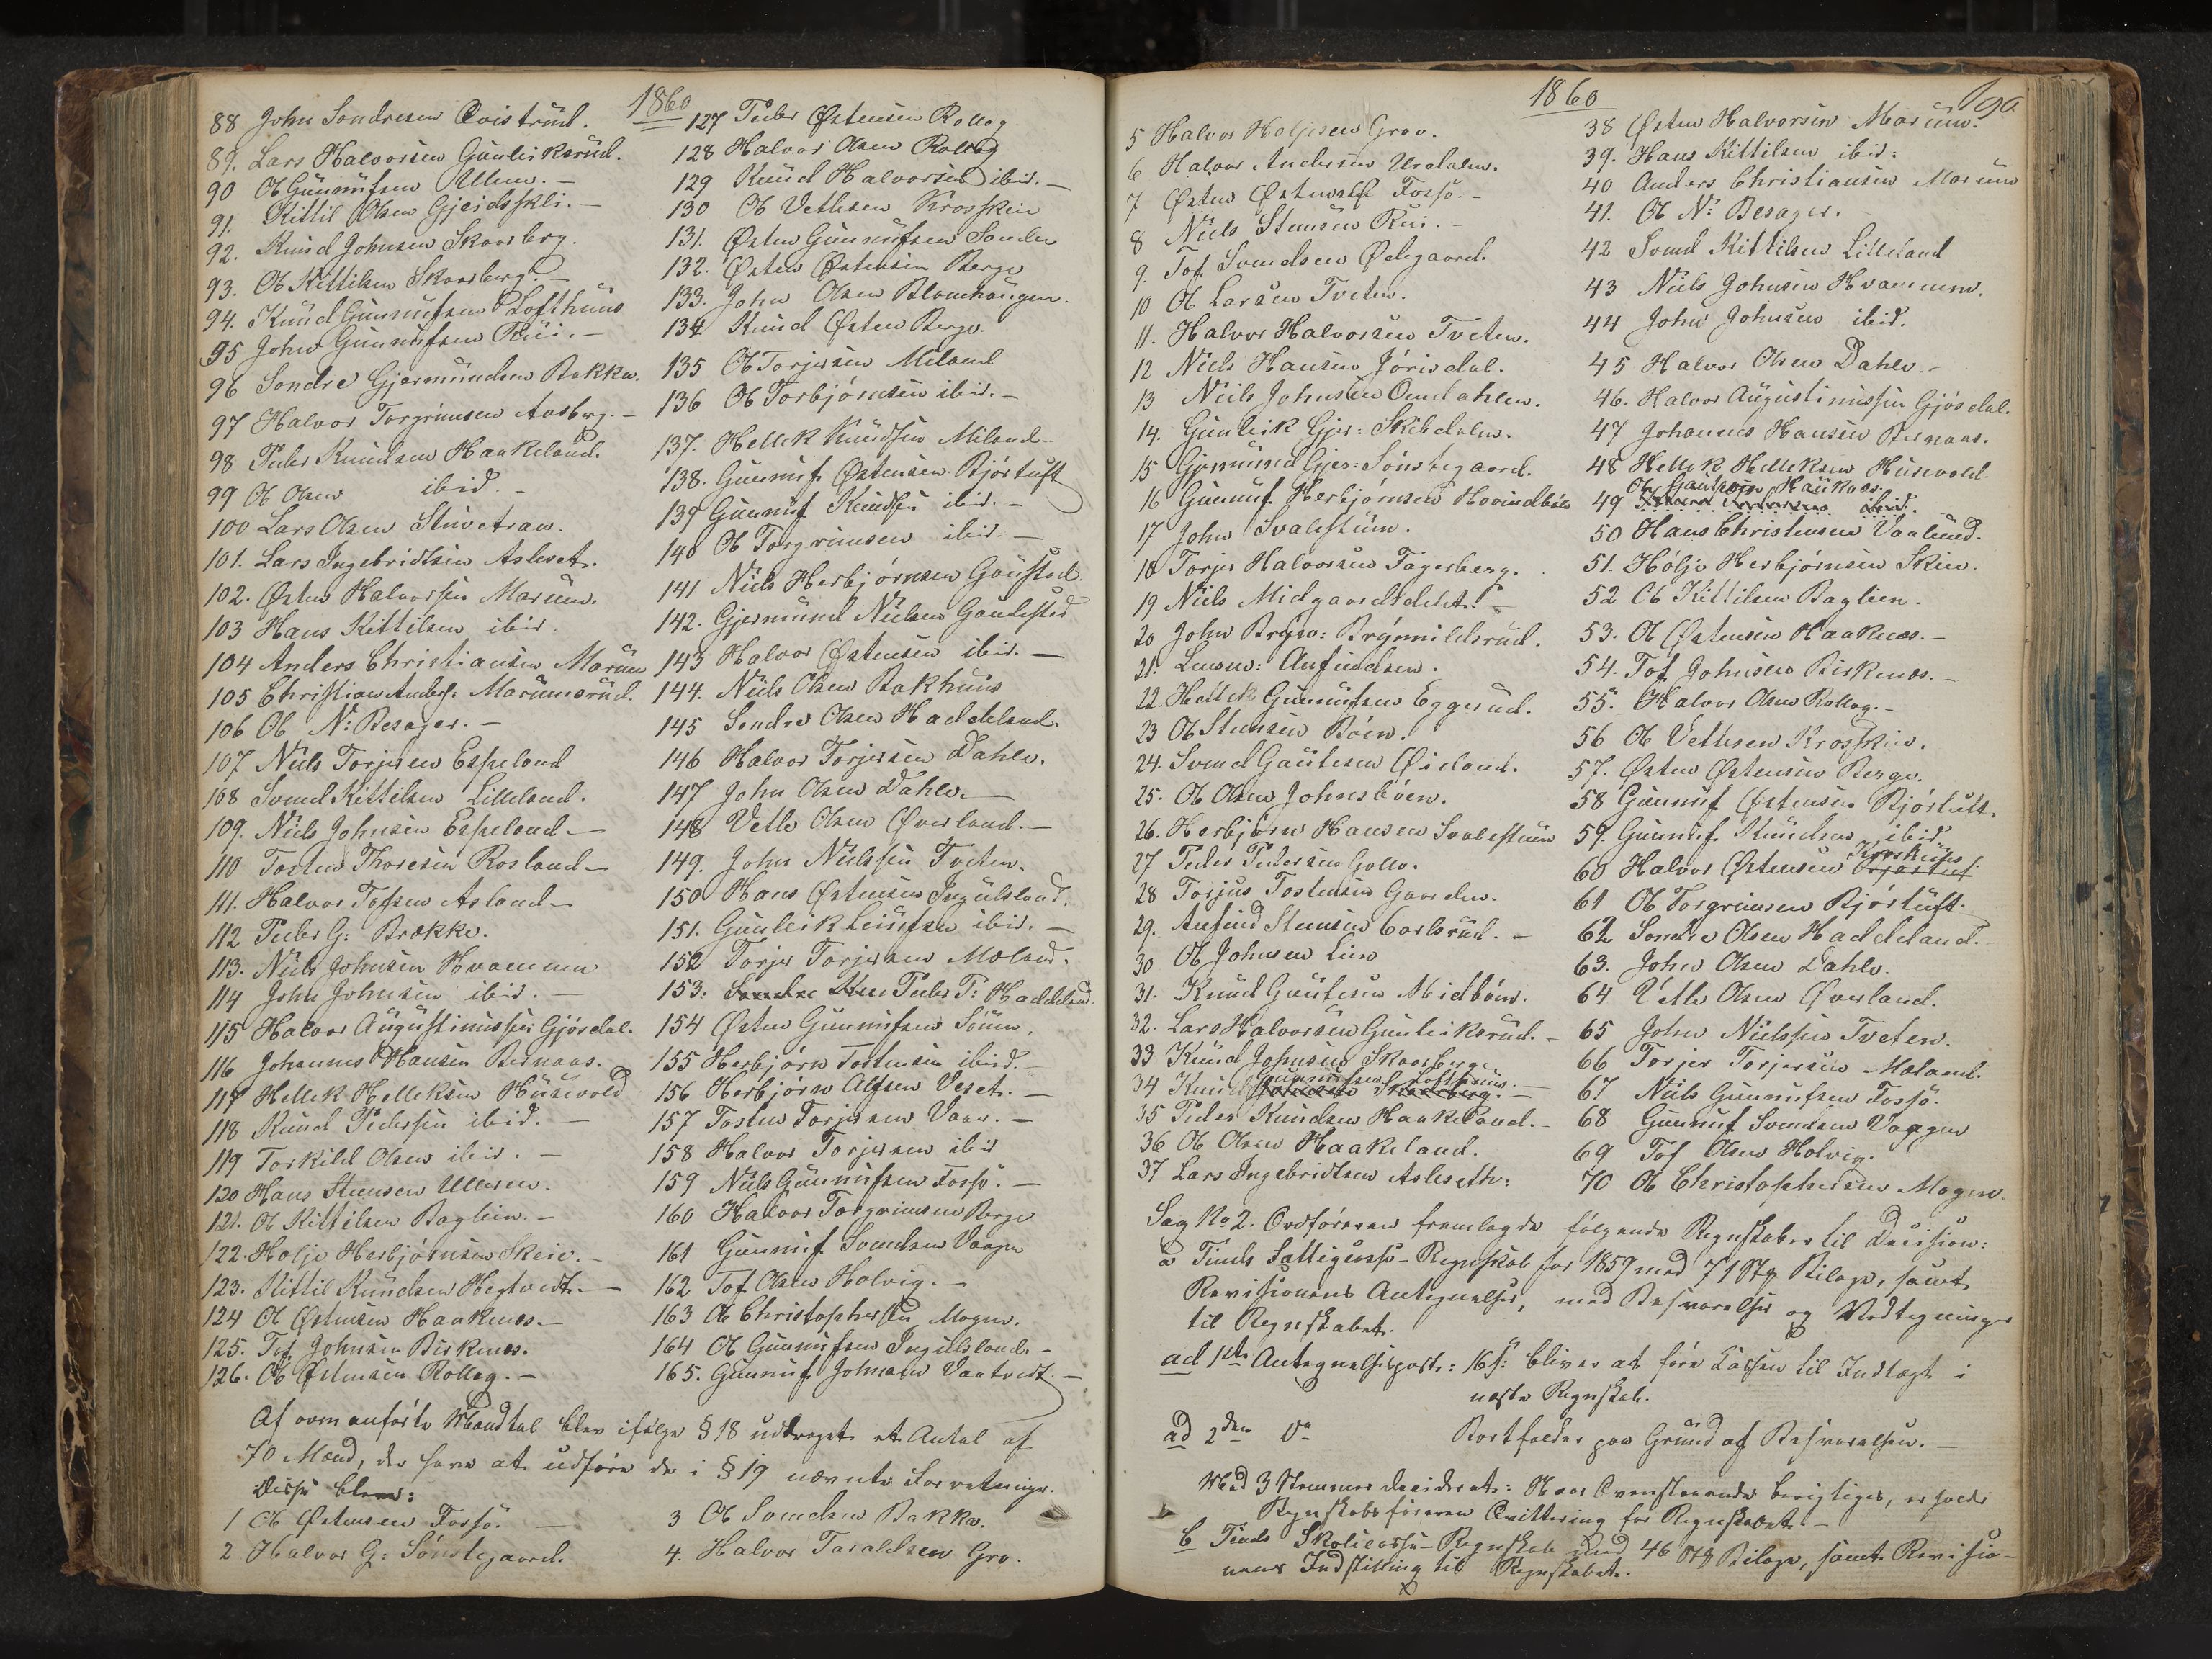 1860
88 John Sondresen Qvistrud.
89. Lars Halvorsen Gunleiksrud.
90 Ol Gunnufsen Ullern. –
91. Kittil Olsen Gjeidsskli. –
92. Knud Johnsen Skaarberg.
93. Ol Kittilsen Skaarberg. –
94. Knud Gunnufsen Lofthuus
95 John Gunnufsen Rui. –
96 Sondre Gjermundsen Bakka.
97 Halvor Torgrimsen Aasberg. –
98 Peder Knudsen Haakeland.
99 Ol Olsen ibid. –
100 Lars Olsen Stuvetraa.
101. Lars Ingebridtsen Asleset.
102. Østen Halvorsen Marum.
103 Hans Kittilsen ibid.
104 Anders Christiansen Marum
105 Christian Anders. Marumsrud.
106 Ol N: Besager. –
107 Niels Torjersen Espeland
108 Svend Kittilsen Lilleland.
109. Niels Johnsen Espeland –
110 Tosten Thoresen Rosland –
111. Halvor Tofsen Asland –
112 Peder G: Brække.
113. Niels Johnsen Hvammen
114 John Johnsen ibid. –
115 Halvor Augustinussen Gjøsdal.
116 Johannes Hansen Bernaas.
117 Hellek Helleksen Husevold
118 Knud Pedersen ibid. –
119 Torkild Olsen ibid. –
120 Hans Steensen Ulleren.
121. Ol Kittilsen Baglien. –
122. Holje Herbjørnsen Skeie. –
123. Kittil Knudsen Hegtvedt. –
124 Ol Østensen Haaknes. –
125. Tof Johnsen Birkenes.
126. Ol Østensen Rollag. –
127 Peder Østensen Rollag
128 Halvor Olsen Rollag
129 Knud Halvorsen ibid. –
130 Ol Vetlesen Krosskeie
131. Østen Gunnufsen Sonden
132. Østen Østensen Berge
133. John Olsen Blomhaugen.
134 Knud Østen Berge.
135 Ol Torjersen Miland
136 Ol Torbjørnsen ibid. –
137. Hellek Knudsen Miland –
138. Gunnuf Østensen Bjørtuft
139 Gunnuf Knudsen ibid. –
140 Ol Torgrimsen ibid. –
141 Niels Herbjørnsen Gausted.
142. Gjermund Nielsen Gaudestad
143 Halvor Østensen ibid. –
144. Niels Olsen Bakhuus
145 Sondre Olsen Haddeland.
146 Halvor Torjersen Dahle.
147 John Olsen Dahle. –
148 Vetle Olsen Øverland. –
149. John Nielssen Tveten.
150 Hans Østensen Ingulsland.
151. Gunleik Leiufsen ibid. –
152 Torjer Torjersen Mæland.
153: Peder T: Haddeland.
154 Østen Gunnufsen Søum.
155 Herbjørn Tostensen ibid. –
156 Herbjørn Alfsen Veset. –
157 Tosten Torjersen Vaae. –
158 Halvor Torjersen ibid
159 Niels Gunnufsen Fossø. –
160 Halvor Torgrimsen Berge
161 Gunnuf Svendsen Vaagen
162 Tof Olsen Holvig. –
163 Ol Christophersen Mogen.
164 Ol Gunnufsen Ingulsland. –
165. Gunnuf Johnsen Vaatvedt. –
Af ovenanførte Mandtal blev ifølge § 18 uddraget et Antal af
70 Mænd, der have at udføre de i § 19 nævnte Forretninger.
Disse bleve:
1 Ol Østensen Fossø. –
2 Halvor G: Sønstegaard.
3 Ol Svendsen Bakka.
4. Halvor Taraldsen Gro.
1860
190
5 Halvor Holjesen Grov.
6 Halvor Andersen Urdalen.
7 Østen Østensen Fossø. –
8 Niels Steensen Rui. –
9. Tof Svendsen Ødegaard.
10 Ol Larsen Tveten.
11. Halvor Halvorsen Tveten.
12 Niels Hansen Jórisdal.
13 Niels Johnsen Omdahlen.
14. Gunleik Gjer: Skibdalen.
15 Gjermund Gjer: Sønstegaard.
16 Gunnuf Herbjørnsen Hovindbøle
17 John Svalestuen.
18 Torjer Halvorsen Fagerberg.
19 Niels Midgaardsdelet. –
20 John Bryn: Brynnildsrud.
21. Anfindsen.
22. Hellek Gunnufsen Eggerud.
23 Ol Steensen Bøen.
24. Svend Gautesen Øieland.
25. Ol Olsen Johnsbøen.
26. Herbjørn Hansen Svalestuen
27 Peder Pedersen Golle.
28 Torjus Tostensen Gaarden.
29. Anfind Steensen Carlsrud. –
30 Ol Johnsen Lien
31. Knud Gautesen Midbøen.
32. Lars Halvorsen Gunleiksrud. –
33 Knud Johnsen Skaarberg.
34 Knud Gunnufsen Lofthuus. –
35 Peder Knudsen Haakeland. –
36 Ol Olsen Haakeland.
37 Lars Ingebridtsen Asleseth:
38 Østen Halvorsen Marum.
39. Hans Kittilsen ibid:
40 Anders Christiansen Marum
41. Ol N: Besager.
42 Svend Kittilsen Lilleland
43 Niels Johnsen Hvammen.
44 John Johnsen ibid.
45 Halvor Olsen Dahle. –
46. Halvor Augustinussen Gjøsdal.
47 Johannes Hansen Bernaas.
48 Hellek Helleksen Husevold.
49 Ol Gautesen Haukaas.
50 Hans Christensen Vaalund.
51. Hølje Herbjørnsen Skeie.
52 Ol Kittilsen Baglien.
53. Ol Østensen Haaknes. –
54. Tof Johnsen Birkenes. –
55. Halvor Olsen Rollag. –
56 Ol Vetlesen Krosskeie.
57. Østen Østensen Berge.
58 Gunnuf Østensen Bjørtuft.
59. Gunnuf Knudsen ibid
60 Halvor Østensen
61 Ol Torgrimsen Bjørtuft.
62 Sondre Olsen Haddeland.
63. John Olsen Dahle.
64 Vetle Olsen Øverland.
65 John Nielssen Tveten.
66 Torjer Torjersen Mæland.
67 Niels Gunnufsen Fossø.
68 Gunnuf Svendsen Vaagen
69 Tof Olsen Holvig.
70 Ol Christophersen Mogen.
Sag No 2. Ordføreren fremlagde følgende Regnskaber til Decision:
a Tinds Fattigcasse-Regnskab for 1859 med 71 Stk Bilage, samt
Revisionens Antegnelser, med Besvarelser og Paategninger
til Regnskabet.
ad 1ste Antegnelsespost: 16 s: bliver at føre Cassen til Indtægt i
næste Regnskab.
ad 2den Do Bortfalder paa Grund af Besvarelsen. –
Med 3 Stemmer decideret: Naar Ovenstaaende berigtiges, erholder
Regnskabsføreren Qvittering for Regnskabet. –
b Tinds Skolecasse-Regnskab med 46 Stk Bilage, samt Revisio-
nens Indstilling til Regnskabet.